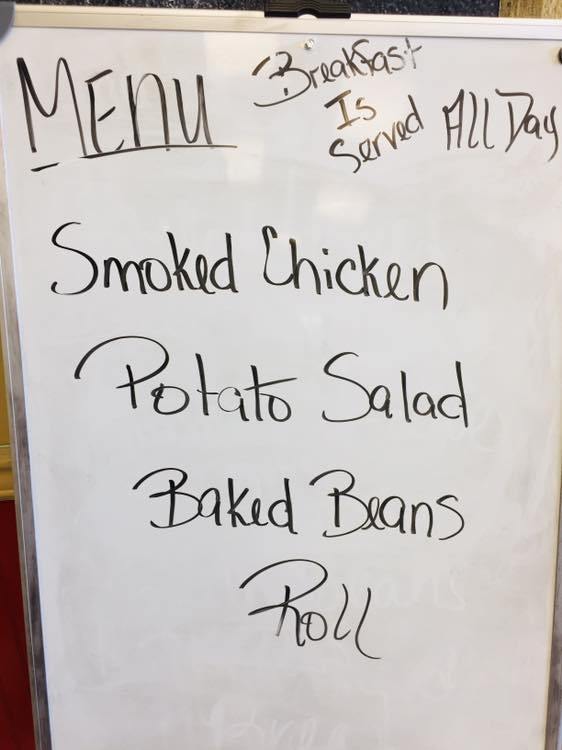 MENU
Breakfast
Is
Served All Day
Smoked Chicken
Potato Salad
Baked Beans
Roll